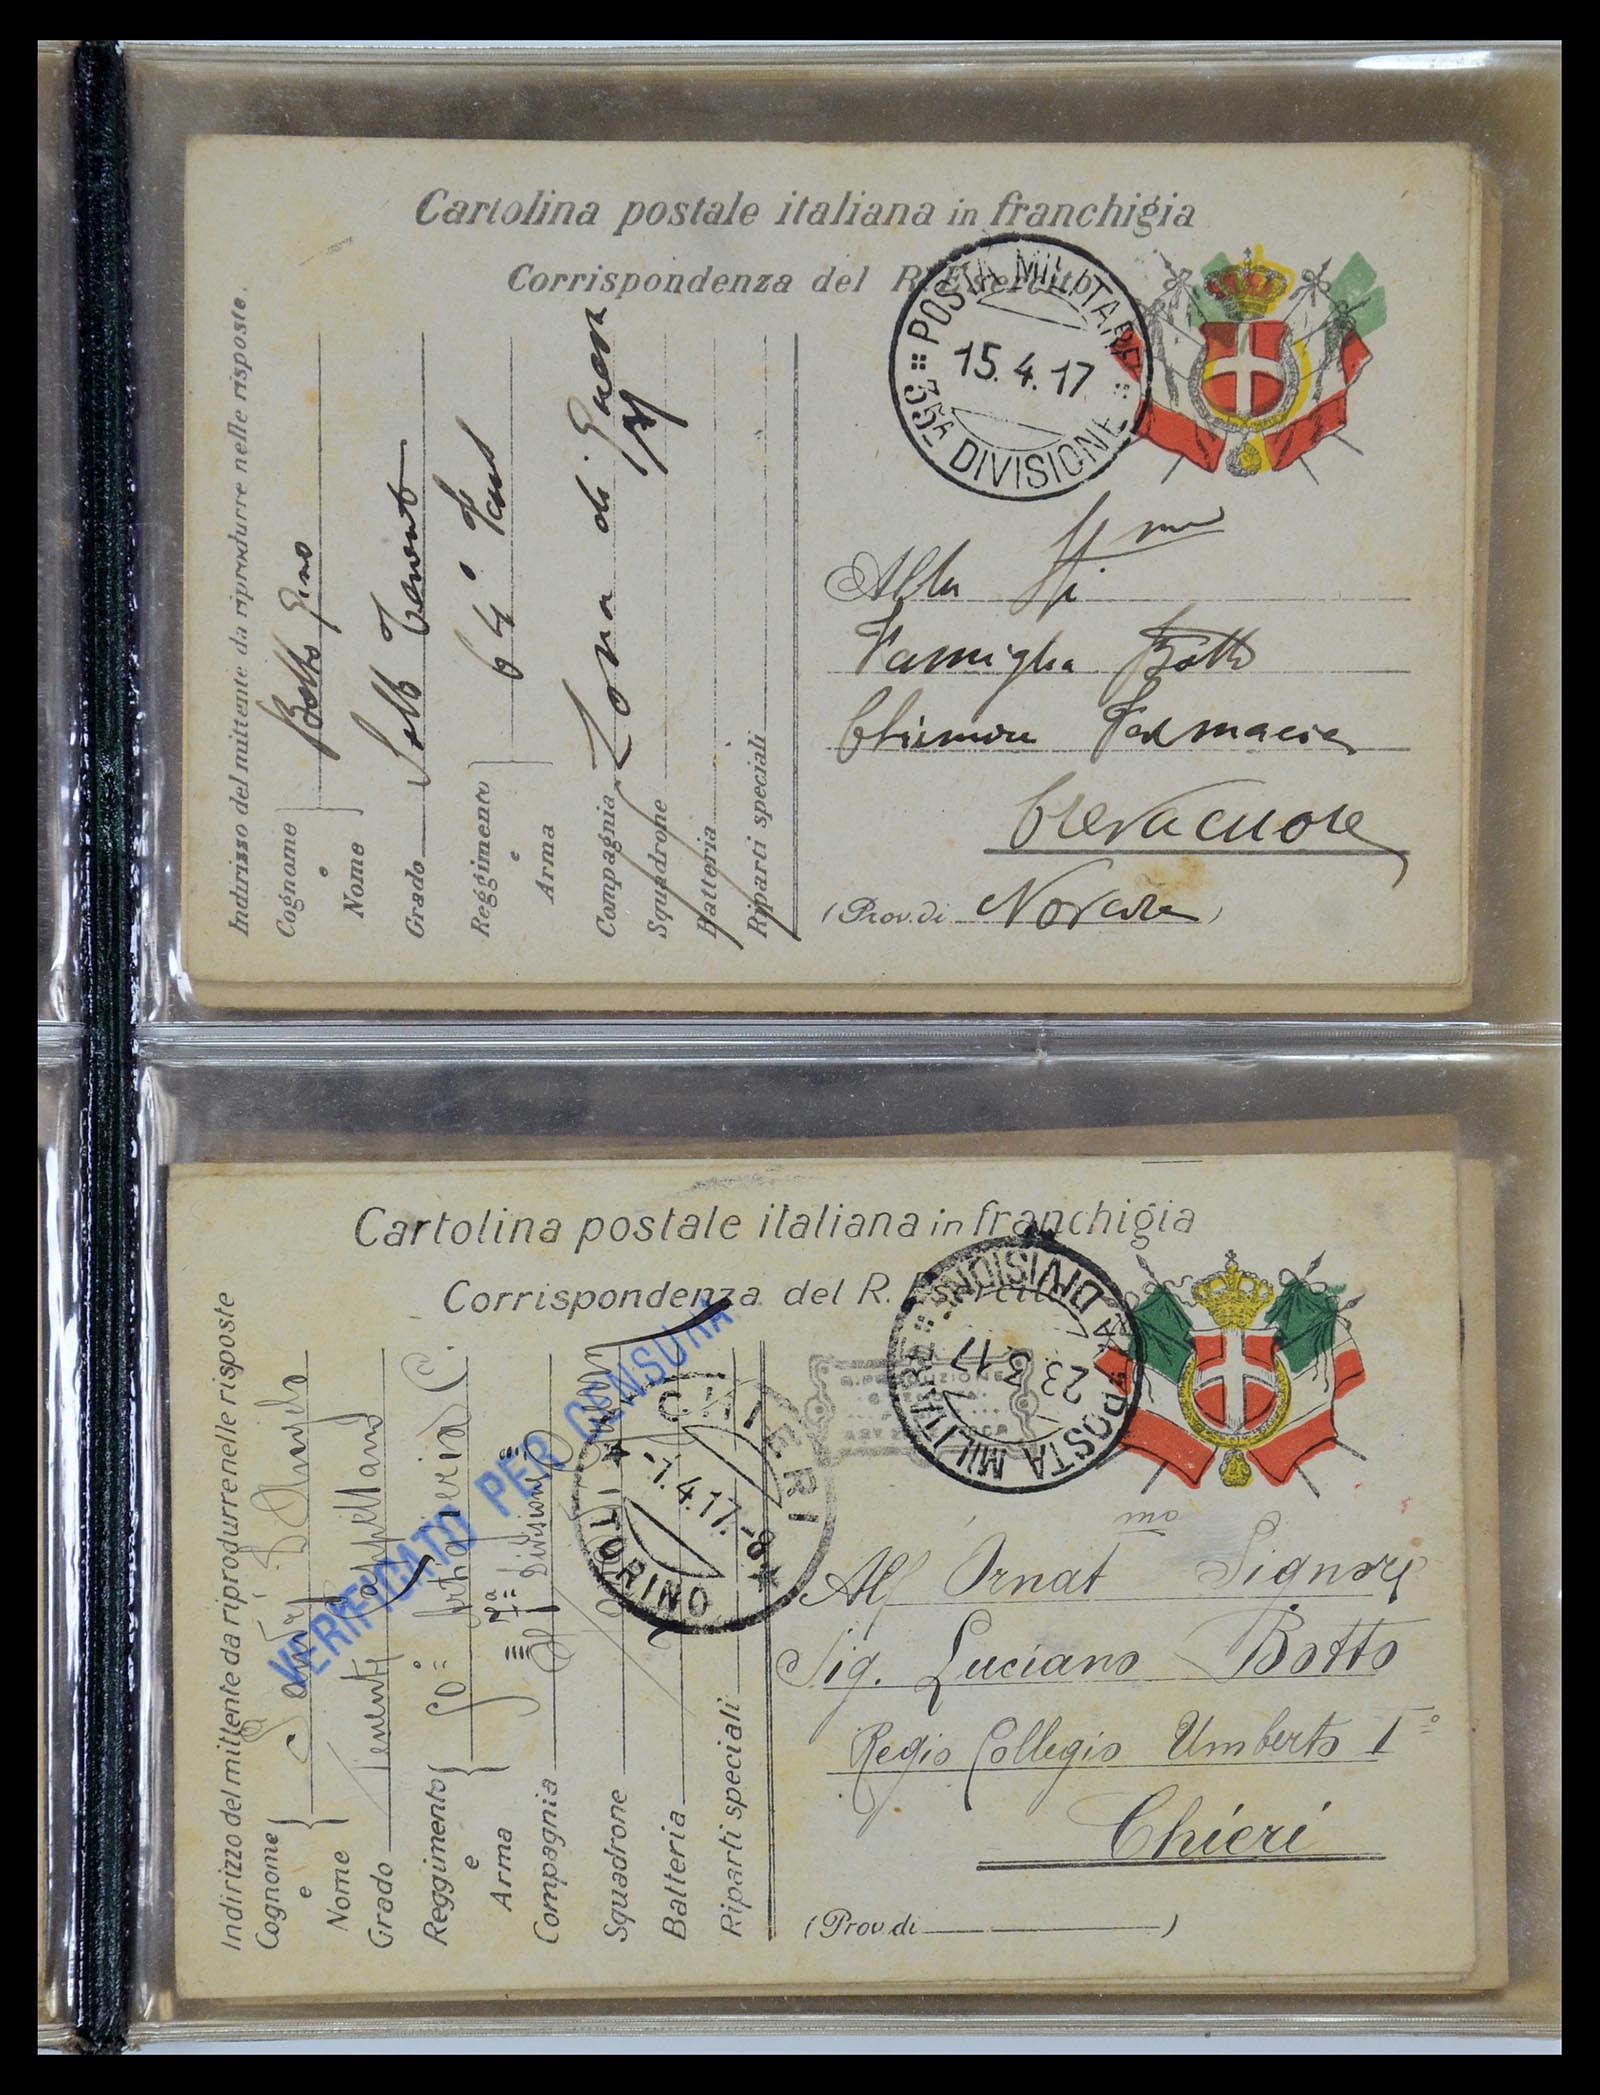 Cartolina postale italiana in franchigia
Corrispondenza del R. Esercito
POSTA MILITARE
15.4.17
35A DIVISIONE
Indirizzo del mittente da riprodurre nelle risposte.
Cognome
e
Nome
Botto Gino
Grado
Reggimento
e
Arma
64°
Compagnia
Zona di Guerra
Squadrone
Batteria
Riparti speciali
Alla
Famiglia Botto
Farmacia
Crevacuore
(Prov. di Novara)
Cartolina postale italiana in franchigia
Corrispondenza del R. Esercito
POSTA MILITARE
23.3.17
DIVISIONE
Indirizzo del mittente da riprodurre nelle risposte
Cognome
e
Nome
Grado
Tenente Cappellano
Reggimento
e
Arma
50° Artiglieria
Compagnia
Divisione
Squadrone
Batteria
Riparti speciali
VERIFICATO PER CENSURA
CHIERI
1.4.17.-8
TORINO
All' Ornat mo Signore
Sig. Luciano Botto
Regio Collegio Umberto I°
Chieri
(Prov. di )